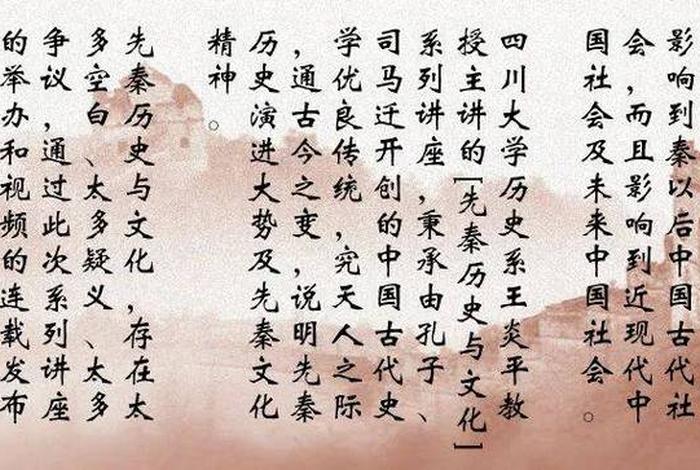 影响到秦以后中国古代社
会，而且影响到近现代中
国社会及未来中国社会。
四川大学历史系王炎平教
授主讲的[先秦历史与文化]
系列讲座，秉承由孔子、
司马迁开创的中国古代史
学优良传统，究天人之际
，通古今之变，说明先秦
历史演进大势及先秦文化
精神。
先秦历史与文化，存在太
多空白、太多疑义、太多
争议，通过此次系列讲座
的举办和视频的连载发布